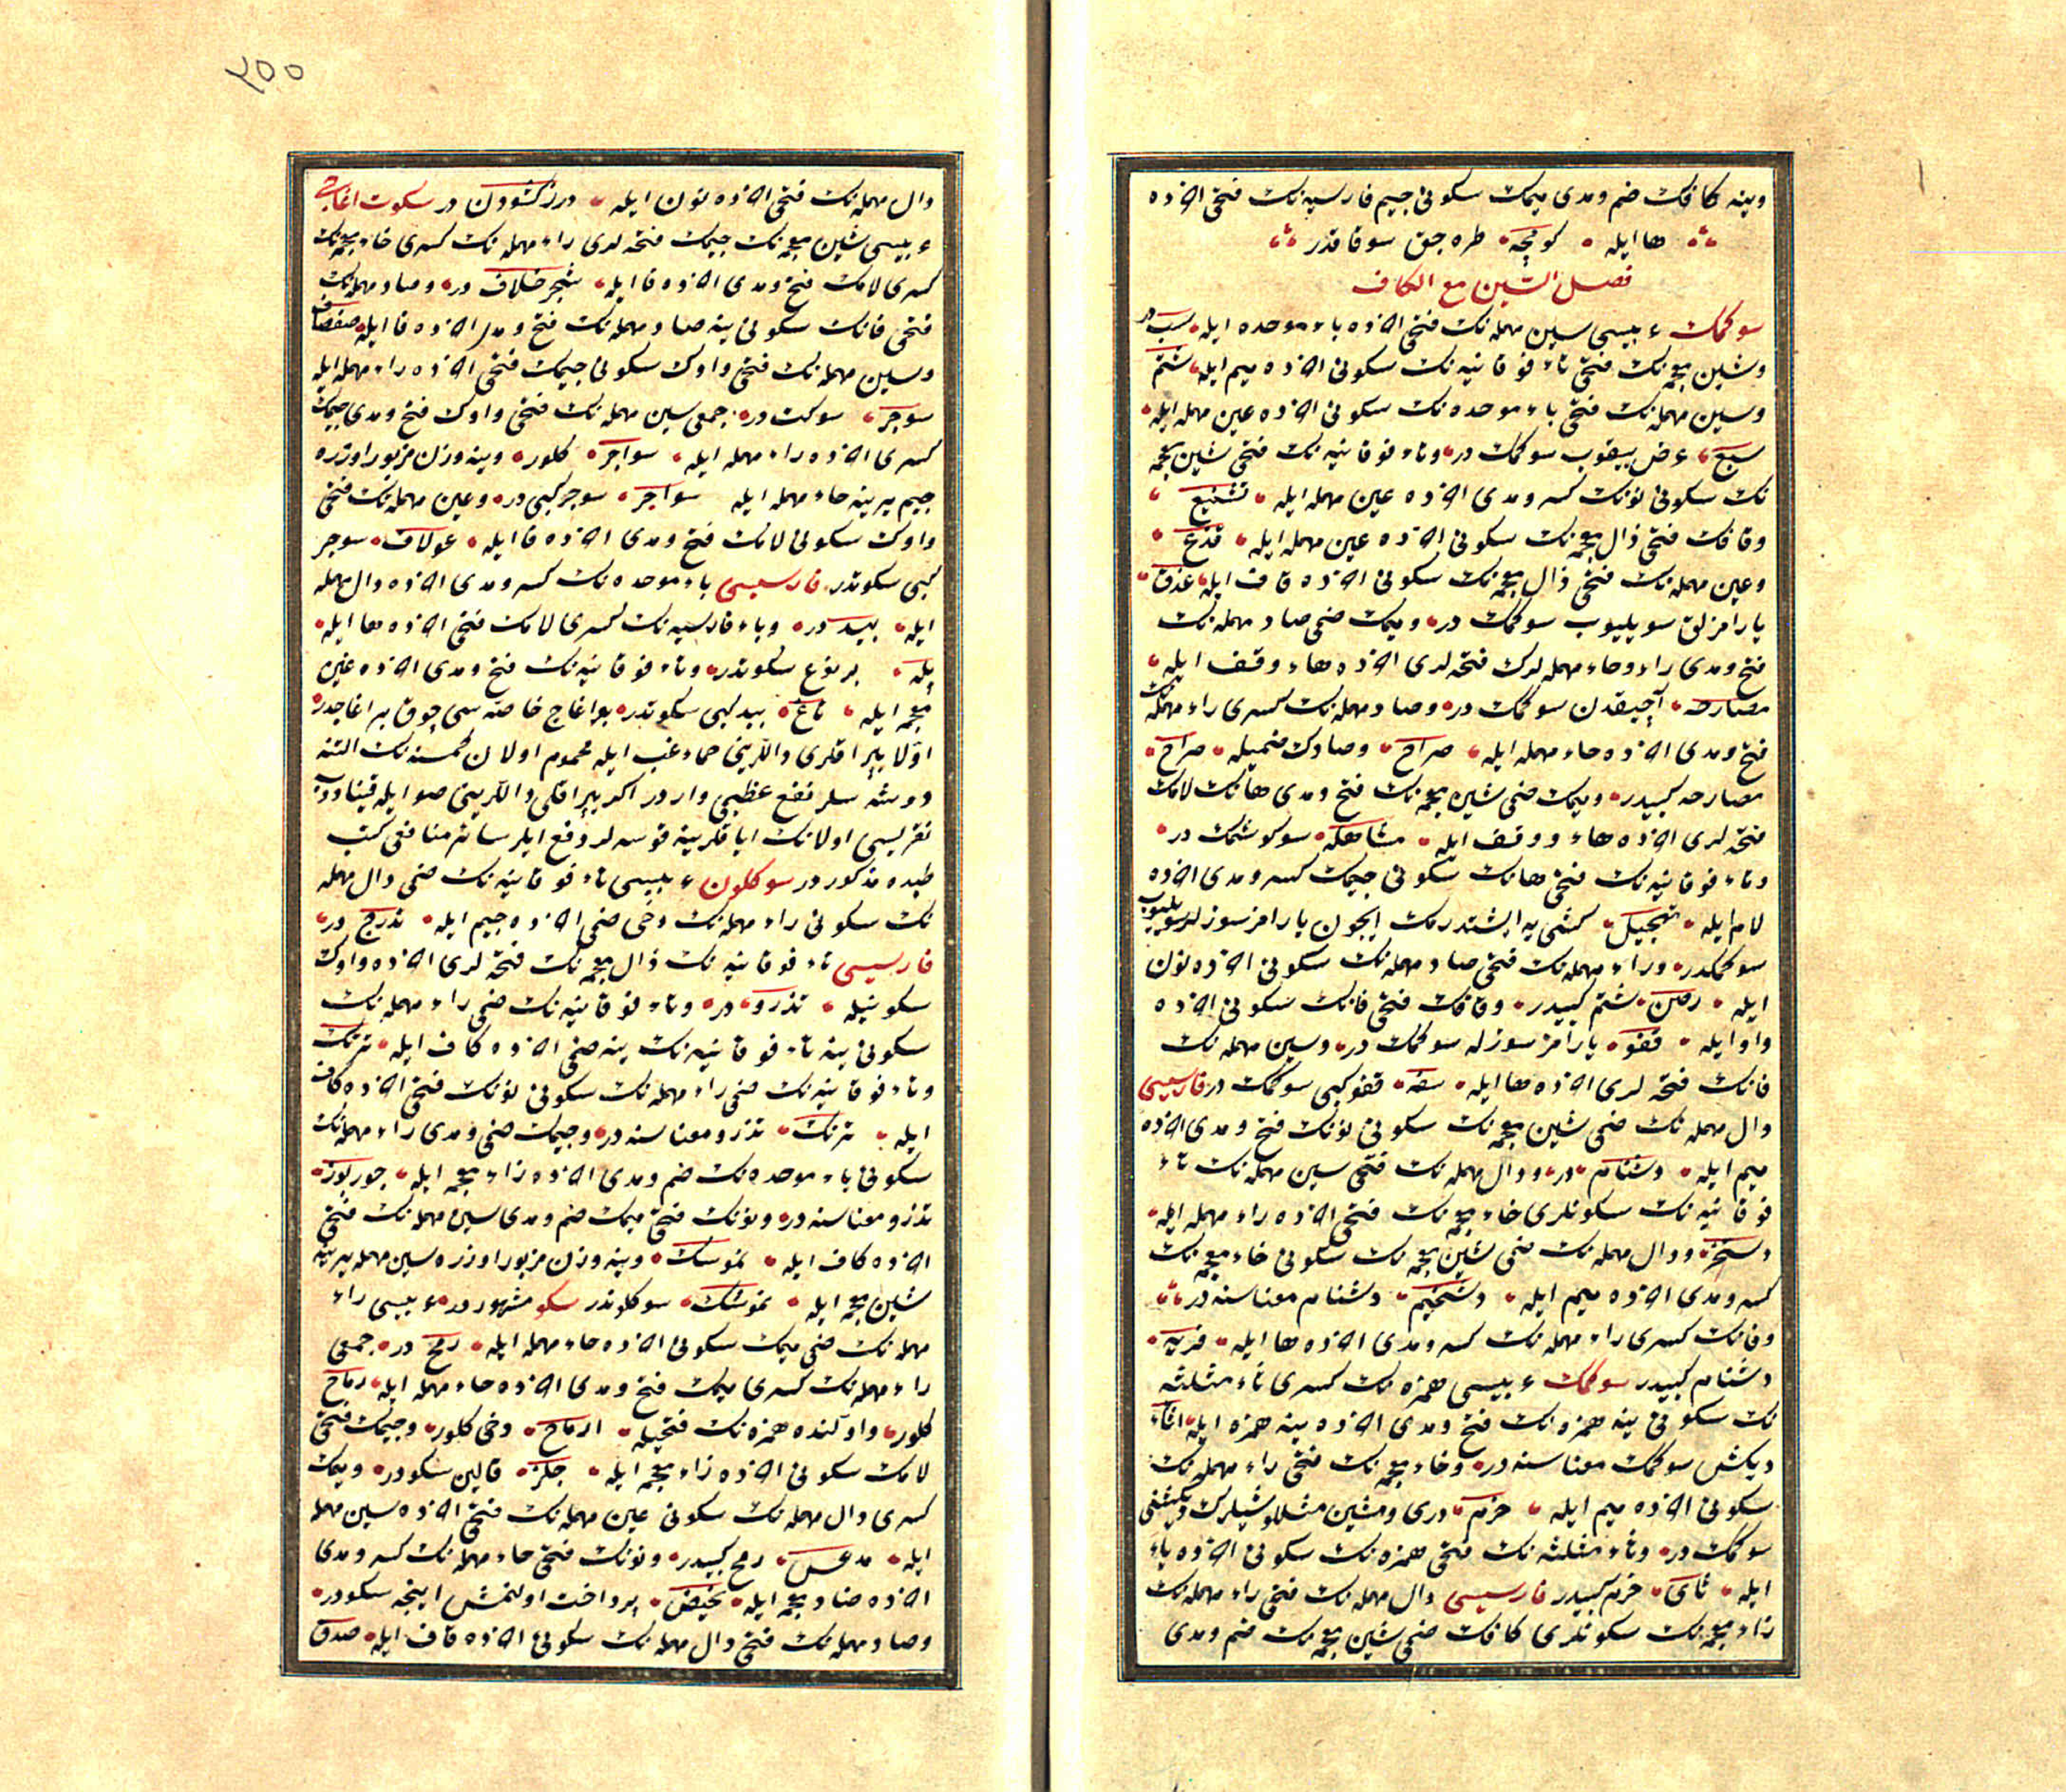 وینه كافك ضم ومدی میمك سكونی جیم فارسیه نك فتحی اخرده
ها ایله كومچه طره جق سوقاقدر
فصل السین مع الكاف
سوكمك عربیسی سین مهمله نك فتحی اخرده باء موحده ایله سب در
وشین معجمه نك فتحی تاء فوقانیه نك سكونی اخرده میم ایله شتم
وسین مهمله نك فتحی باء موحده نك سكونی اخرده عین مهمله ایله
سبع عرض یقوب سوكمك در وتاء فوقانیه نك فتحی شین معجمه
نك سكونی نونك كسر ومدی اخرده عین مهمله ایله تشنیع
وقافك فتحی ذال معجمه نك سكونی اخرده عین مهمله ایله قذع
وعین مهمله نك فتحی ذال معجمه نك سكونی اخرده قاف ایله عذق
یارامزلق سویلیوب سوكمك در ومیمك ضمی صاد مهمله نك
فتح ومدی راء وحاء مهمله لرك فتحه لری اخرده هاء وقف ایله
مصارحه آچیقدن سوكمك در وصاد مهمله نك كسری راء مهمله نك
فتح ومدی اخرده حاء مهمله ایله صراح وصادك ضمیله صراح
مصارحه كبیدر ومیمك ضمی شین معجمه نك فتح ومدی هانك لامك
فتحه لری اخرده هاء ووقف ایله مشاهله سوكوشمك در
وتاء فوقانیه نك فتحی هانك سكونی جیمك كسر ومدی اخرده
لام ایله تهجیل كشی یه ایشتدرمك ایچون یارامز سوزلر سویلیوب
سوكمكدر وراء مهمله نك فتحی صاد مهمله نك سكونی اخرده نون
ایله رصن شتم كبیدر وقافك فتحی فانك سكونی اخرده
واو ایله قفو یارامز سوزله سوكمك در وسین مهمله نك
فانك فتحه لری اخرده ها ایله سفه قفو كبی سوكمك در فارسیسی
دال مهمله نك ضمی شین معجمه نك سكونی نونك فتح ومدی اخرده
میم ایله دشنام در ودال مهمله نك فتحی سین مهمله نك تاء
فوقانیه نك سكونلری خاء معجمه نك فتحی اخرده راء مهمله ایله
دستخر ودال مهمله نك ضمی شین معجمه نك سكونی خاء معجمه نك
كسر ومدی اخرده میم ایله دشخیم دشنام معناسنه در
وفانك كسری راء مهمله نك كسر ومدی اخرده ها ایله فریه
دشنام كبیدر سوكمك عربیسی همزه نك كسری ثاء مثلثه
نك سكونی ینه همزه نك فتح ومدی اخرده ینه همزه ایله اثآء
دیكش سوكمك معناسنه در وخاء معجمه نك فتحی راء مهمله نك
سكونی اخرده میم ایله خرم دری ومشین مثللو شیلرك دیكشنی
سوكمك در وثاء مثلثه نك فتحی همزه نك سكونی اخرده یاء
ایله ثای خرم كبیدر فارسیسی دال مهمله نك فتحی راء مهمله نك
زاء معجمه نك سكونلری كافك ضمی شین معجمه نك ضم ومدی
٢٥٥
دال مهمله نك فتحی اخرده نون ایله درز كشودن در سكوت اغاجی
عربیسی شین معجمه نك جیمك فتحه لری راء مهمله نك كسری خاء معجمه نك
كسری لامك فتح ومدی اخرده فا ایله شجر خلاف در وصاد مهمله نك
فتحی فانك سكونی ینه صاد مهمله نك فتح ومدی اخرده فا ایله صفصاف
وسین مهمله نك فتحی واوك سكونی جیمك فتحی اخرده راء مهمله ایله
سوجر سوكت در جمعی سین مهمله نك فتحی واوك فتح ومدی جیمك
كسری اخرده راء مهمله ایله سواجر كلور وینه وزن مزبور اوزره
جیم یرینه حاء مهمله ایله سواحر سوجر كبی در وعین مهمله نك فتحی
واوك سكونی لامك فتح ومدی اخرده فا ایله عولاف سوجر
كبی سكوتدر فارسیسی باء موحده نك كسر ومدی اخرده دال مهمله
ایله بید در وباء فارسیه نك كسری لامك فتحی اخرده ها ایله
پله بر نوع سكوتدر وتاء فوقانیه نك فتح ومدی اخرده غین
معجمه ایله تاغ بید كبی سكوتدر بو اغاج خاصه سی چوق بر اغاجدر
اولا یپراقلری داللرینی حماء غب ایله محموم اولان كمسنه نك التنه
دوشه سلر نفع عظیمی واردر اكر یپراقلی داللرینی صو ایله قیناودب
نقریسی اولانك ایاقلرینه قوسه لر دفع ایلر سائر منافعی كتب
طبده مذكور در سوكلون عربیسی تاء فوقانیه نك ضمی دال مهمله
نك سكونی راء مهمله نك دخی ضمی اخرده جیم ایله تدرج در
فارسیسی تاء فوقانیه نك ذال معجمه نك فتحه لری اخرده واوك
سكونیله تذرو در وتاء فوقانیه نك ضمی راء مهمله نك
سكونی ینه تاء فوقانیه نك ینه ضمی اخرده كاف ایله ترتك
وتاء فوقانیه نك ضمی راء مهمله نك سكونی نونك فتحی اخرده كاف
ایله ترنك تذرو معناسنه در وجیمك ضمی ومدی راء مهمله نك
سكونی باء موحده نك ضم ومدی اخرده زاء معجمه ایله جوربوز
تذرو معناسنه در ونونك فتحی میمك ضم ومدی سین مهمله نك فتحی
اخرده كاف ایله نموسك وینه وزن مزبور اوزره سین مهمله یرینه
شین معجمه ایله نموشك سوكلوندر سكو مشهور در عربیسی راء
مهمله نك ضمی میمك سكونی اخرده حاء مهمله ایله رمح در جمعی
راء مهمله نك كسری میمك فتح ومدی اخرده حاء مهمله ایله رماح
كلور واولنده همزه نك فتحیله ارماح دخی كلور وجیمك فتحی
لامك سكونی اخرده زاء معجمه ایله جلز قالین سكودر ومیمك
كسری دال مهمله نك سكونی عین مهمله نك فتحی اخرده سین مهمله
ایله مدعس رمح كبیدر ونونك فتحی حاء مهمله نك كسر ومدی
اخرده ضاد معجمه ایله نحیض پرداخت اولنمش اینجه سكودر
وصاد مهمله نك فتحی دال مهمله نك سكونی اخرده قاف ایله صدق